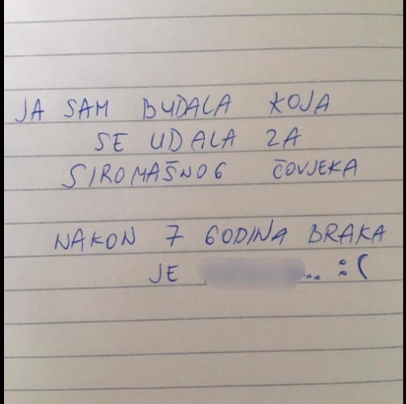 JA SAM BUDALA KOJA
SE UDALA ZA
SIROMAŠNOG ČOVJEKA
NAKON 7 GODINA BRAKA
JE ... :(